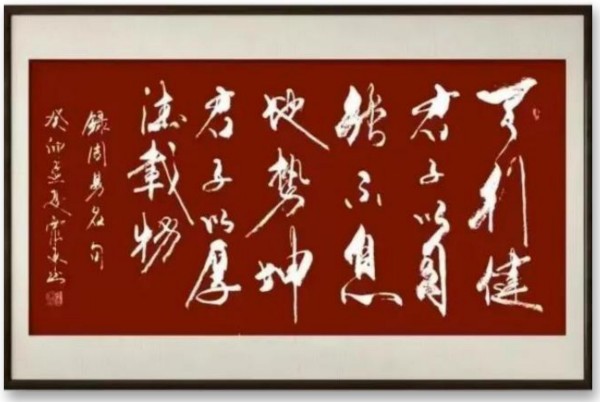 天行健
君子以自
强不息
地勢坤
君子以厚
德載物
録周易名句
癸卯孟夏